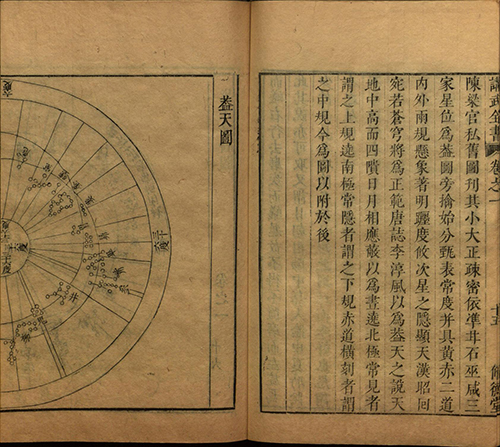 陳梁官私舊圖刊其小大正疎密依準甘石巫咸三
家星位為葢圖旁摛始分甄表常度并具黃赤二道
內外兩規懸象著明躔度攸次星之隱顯天漢昭回
宛若蒼穹將為正範唐誌李淳風以為葢天之說天
地中高而四隤日月相應蔽以為晝遶北極常見者
謂之上規遶南極常隱者謂之下規赤道橫刻者謂
之中規今為圖以附於後
葢天圖
井